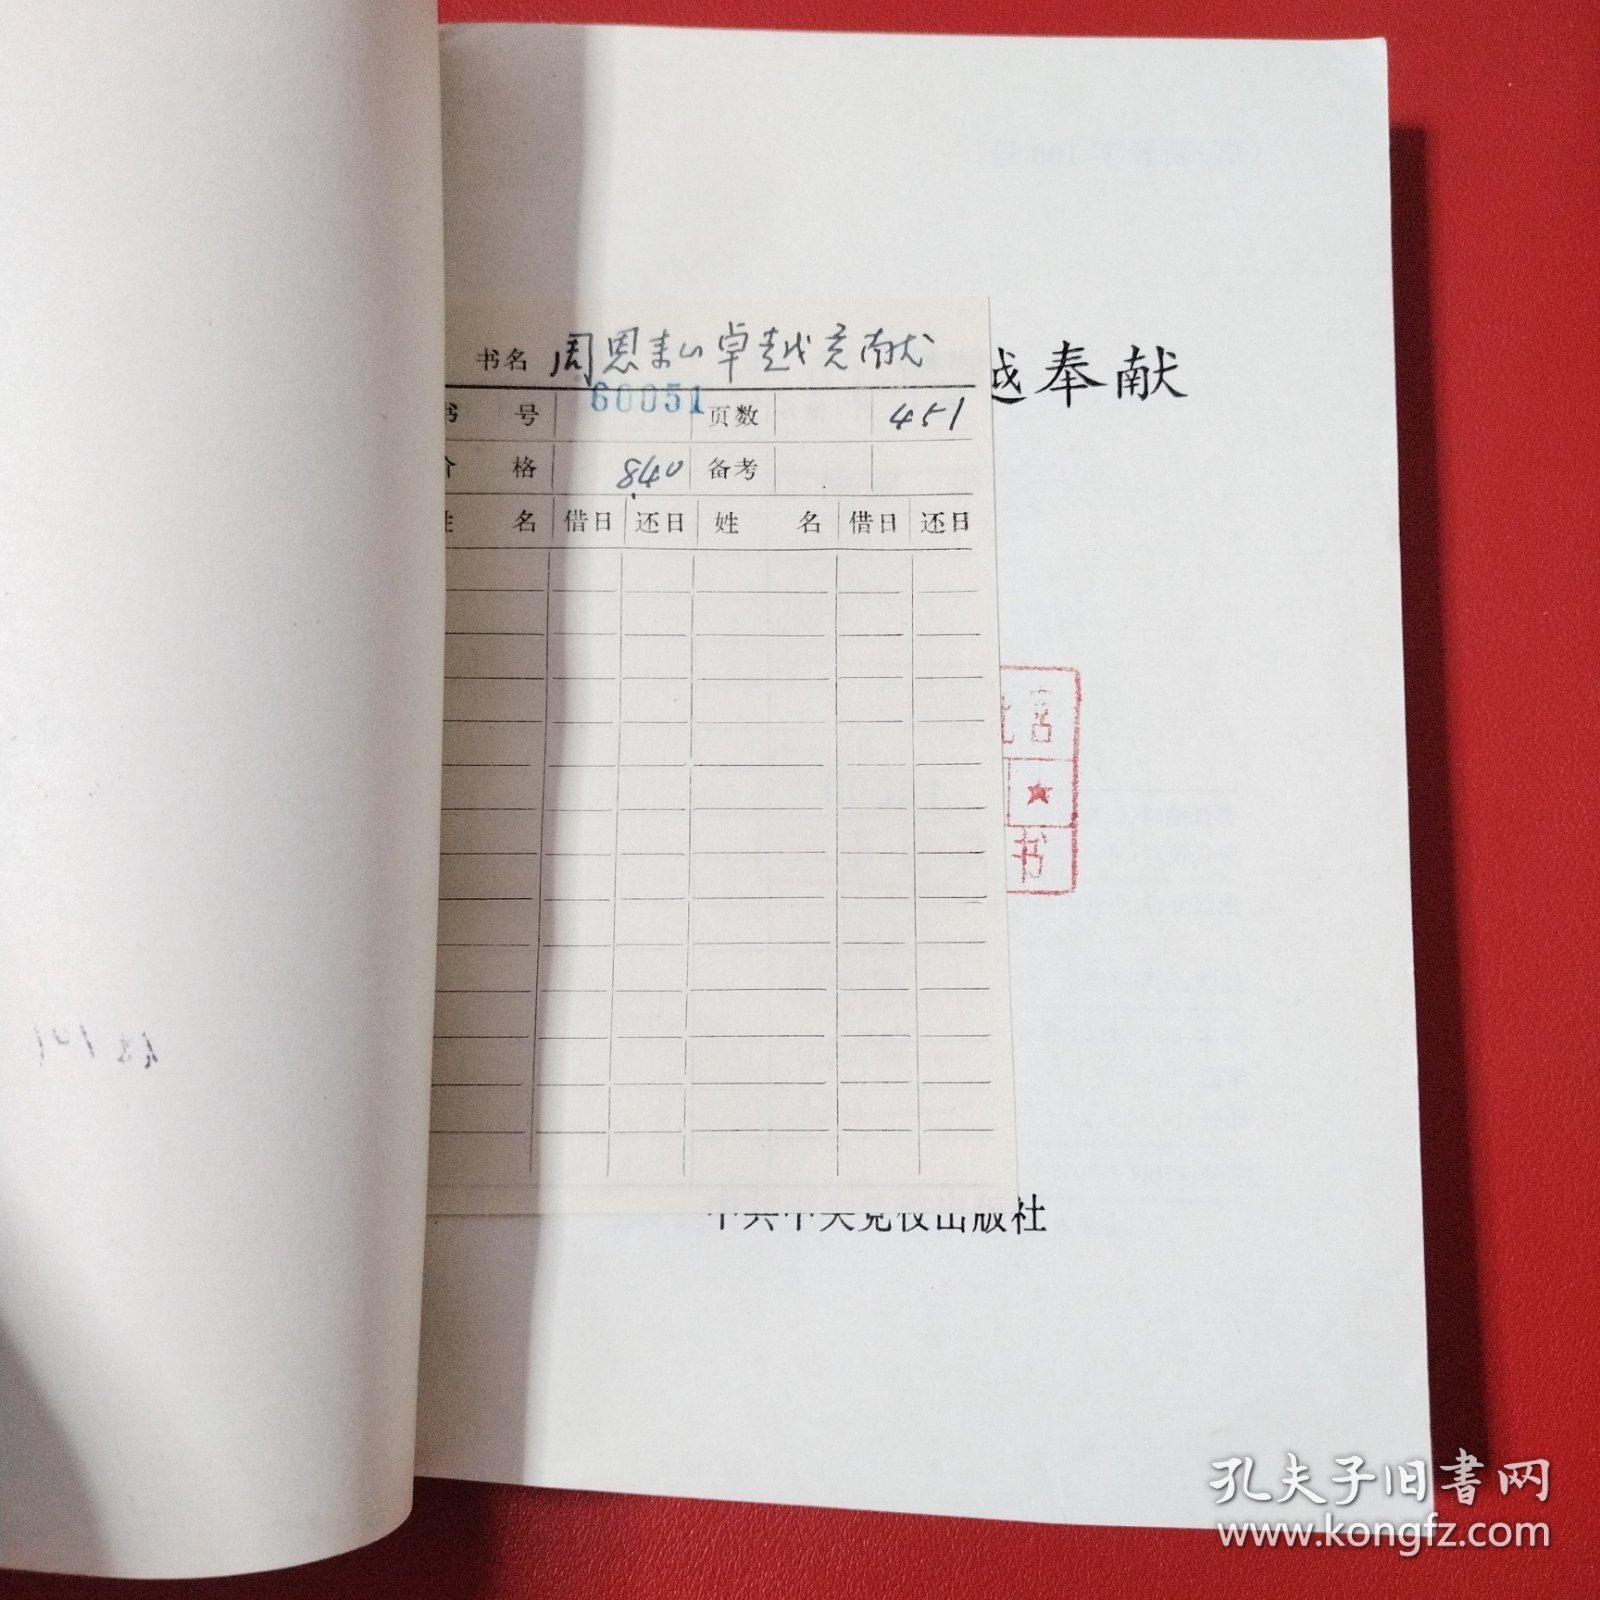 书名 周恩来 卓越 献
越奉献
书号 60051 页数 451
价格 8.40 备考
姓名 借日 还日 姓名 借日 还日
宫
书
中共中央党校出版社
孔夫子旧书网
www.kongfz.com